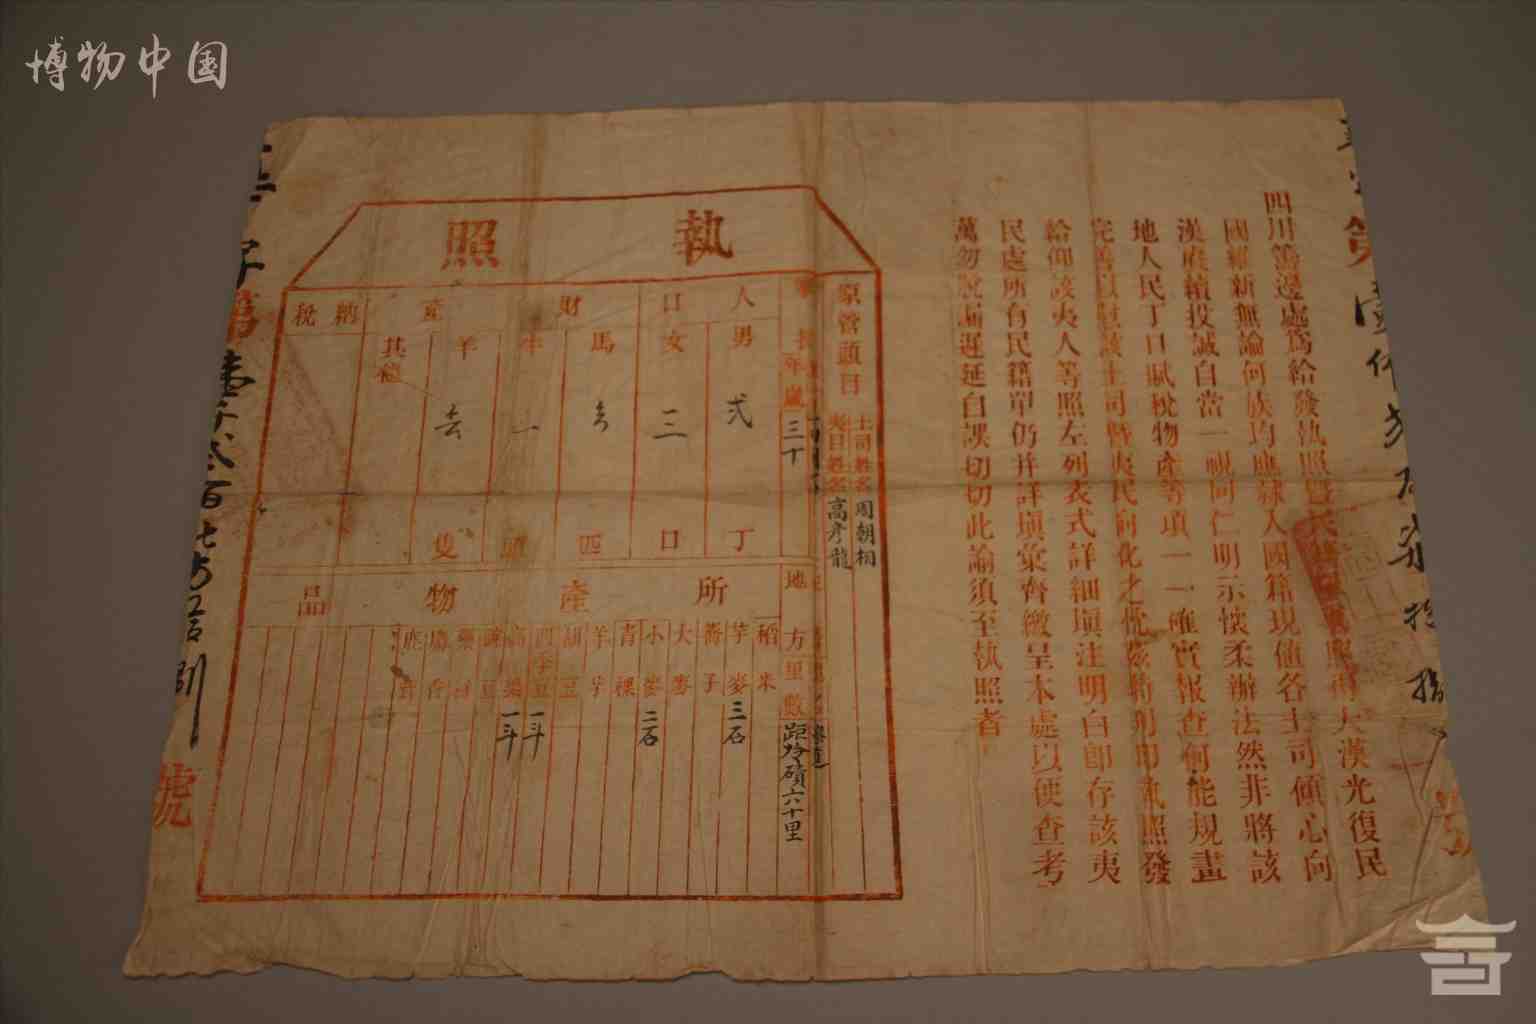 博物中国
四川籌邊處爲給發執照暨民籍
大漢光復民
國維新無論何族均應隸入國籍現値各土司傾心向
漢賡續投誠自當一視同仁明示懷柔辦法然非將該
地人民丁口賦稅物產等項一一確實報查何能規畫
完善以慰該土司暨夷民向化之忱
特刊印執照發
給仰該夷人等照左列表式詳細塡注明白卽存該夷
民處所有民籍單仍并詳塡彙齊繳呈本處以便查考
萬勿
漏遲延自誤切切此諭須至執照者
執照
原管頭目
土司姓名 周朝相
夷目姓名 高彥龍
年歲 三十
人口
男 弍 丁
女 三 口
財產
馬 匹
牛 一 頭
羊 隻
其他
納稅
地方里數 距冷磧六十里
所產物品
稻米
芋麥 三石
蕎子
大麥
小麥 二石
青稞
羊芋
胡豆
四季豆 一斗
高粱 一斗
豌豆
藥材
麝香
鹿茸
字第壹千弍百七十
號